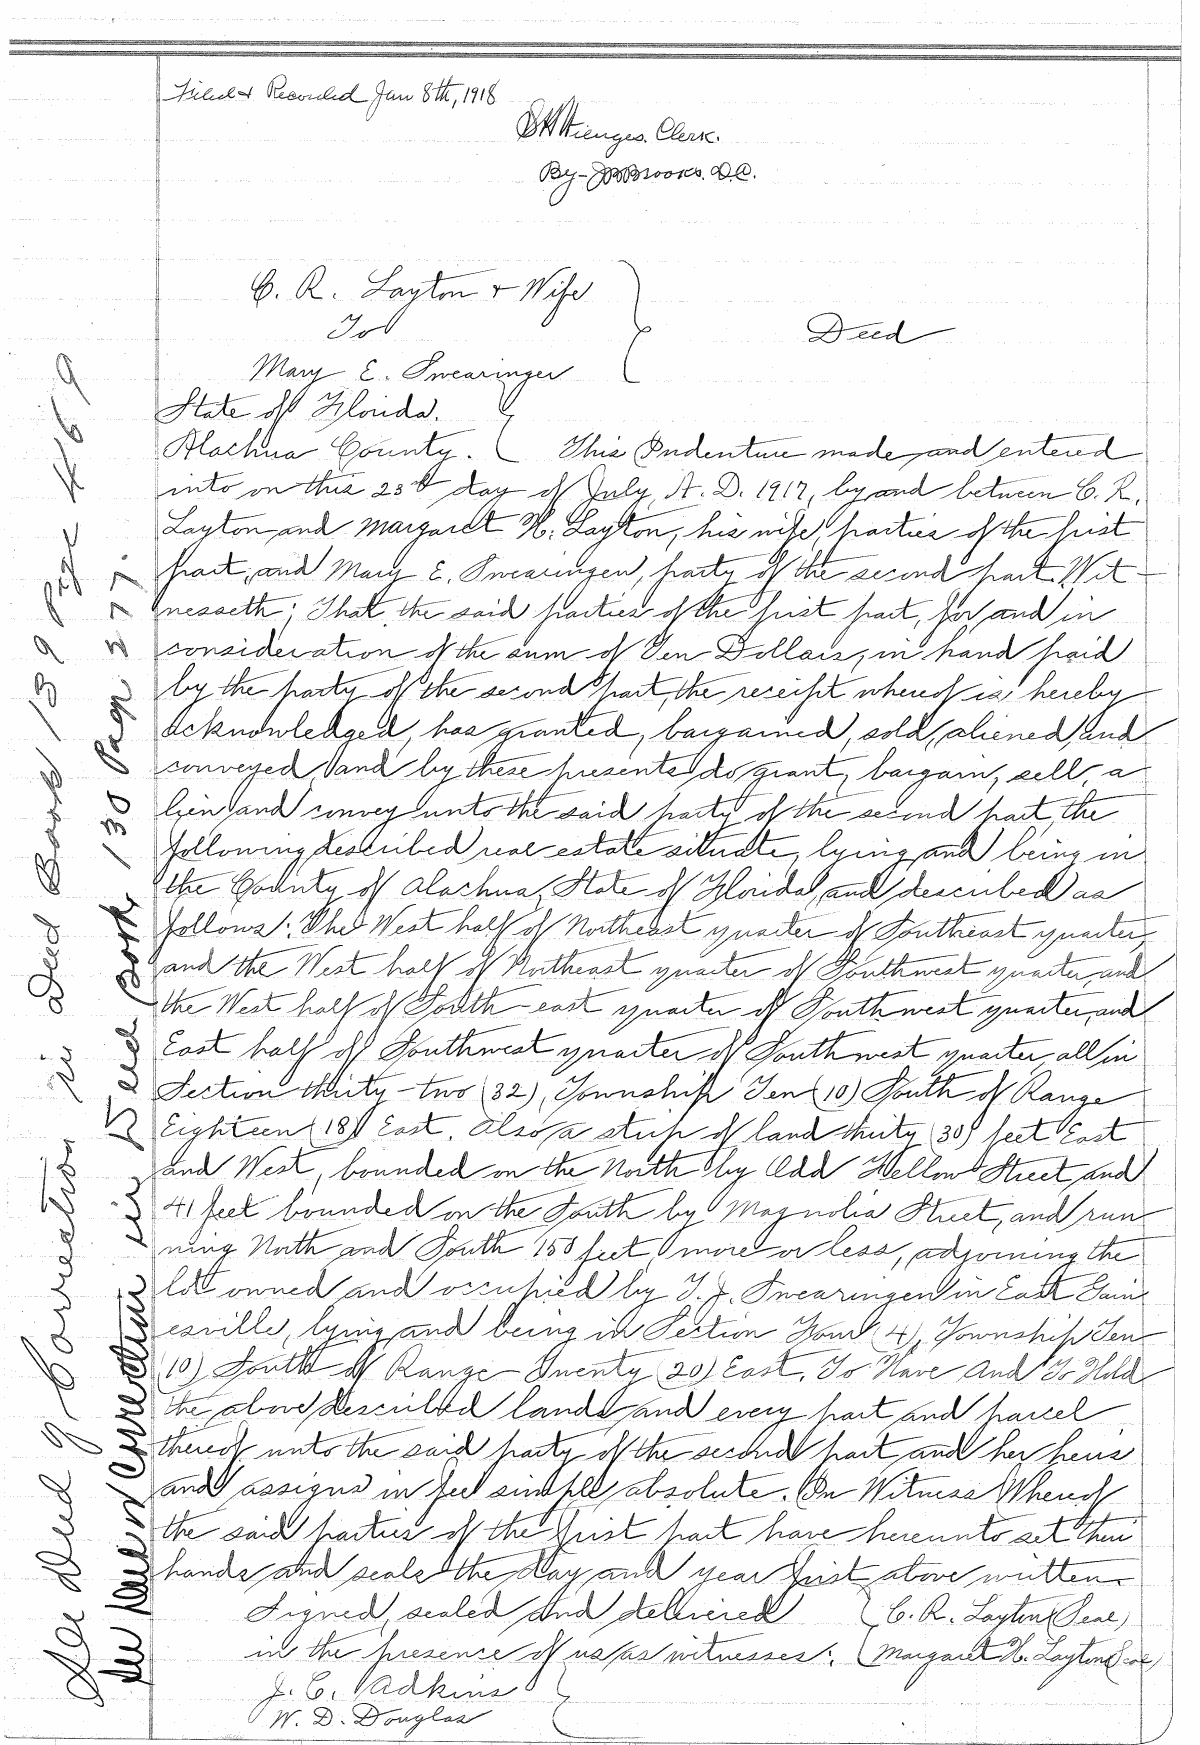 Filed & Recorded Jan 8th, 1918
S H Wienges. Clerk.
By- J B Brooks. D.C.
C. R. Layton & Wife
To
Deed
Mary E. Swearinger
State of Florida.
Alachua County. This Indenture made and entered
into on this 23rd day of July, A. D. 1917, by and between C. R.
Layton and Margaret H. Layton, his wife, parties of the first
part, and Mary E. Swearingen, party of the second part, Wit-
nesseth; That the said parties of the first part, for and in
consideration of the sum of Ten Dollars, in hand paid
by the party of the second part, the receipt whereof is hereby
acknowledged, has granted, bargained, sold, aliened, and
conveyed, and by these presents do grant, bargain, sell, a
lien and convey unto the said party of the second part, the
following described real estate situate, lying and being in
the County of Alachua, State of Florida, and described as
follows: The West half of Northeast quarter of Southeast quarter,
and the West half of Northeast quarter of Southwest quarter, and
the West half of South-east quarter of Southwest quarter, and
East half of Southwest quarter of Southwest quarter, all in
Section thirty-two (32), Township Ten (10) South of Range
Eighteen (18) East. Also a strip of land thirty (30) feet East
and West, bounded on the North by Odd Fellow Street, and
41 feet bounded on the South by Magnolia Street, and run-
ning North and South 150 feet, more or less, adjoining the
lot owned and occupied by T. J. Swearingen in East Gain
esville, lying and being in Section Four (4), Township Ten
(10) South of Range Twenty (20) East. To Have And To Hold
the above described lands and every part and parcel
thereof unto the said party of the second part and her heirs
and assigns in fee simple absolute. In Witness Whereof
the said parties of the first part have hereunto set their
hands and seals the day and year first above written.
Signed, sealed and delivered C. R. Layton (Seal)
in the presence of us as witnesses: Margaret H. Layton (Seal)
J. C. Adkins
W. D. Douglas
See Deed of Correction in Deed Book 139 Page 469
See Deed of Correction in Deed Book 130 Page 277.